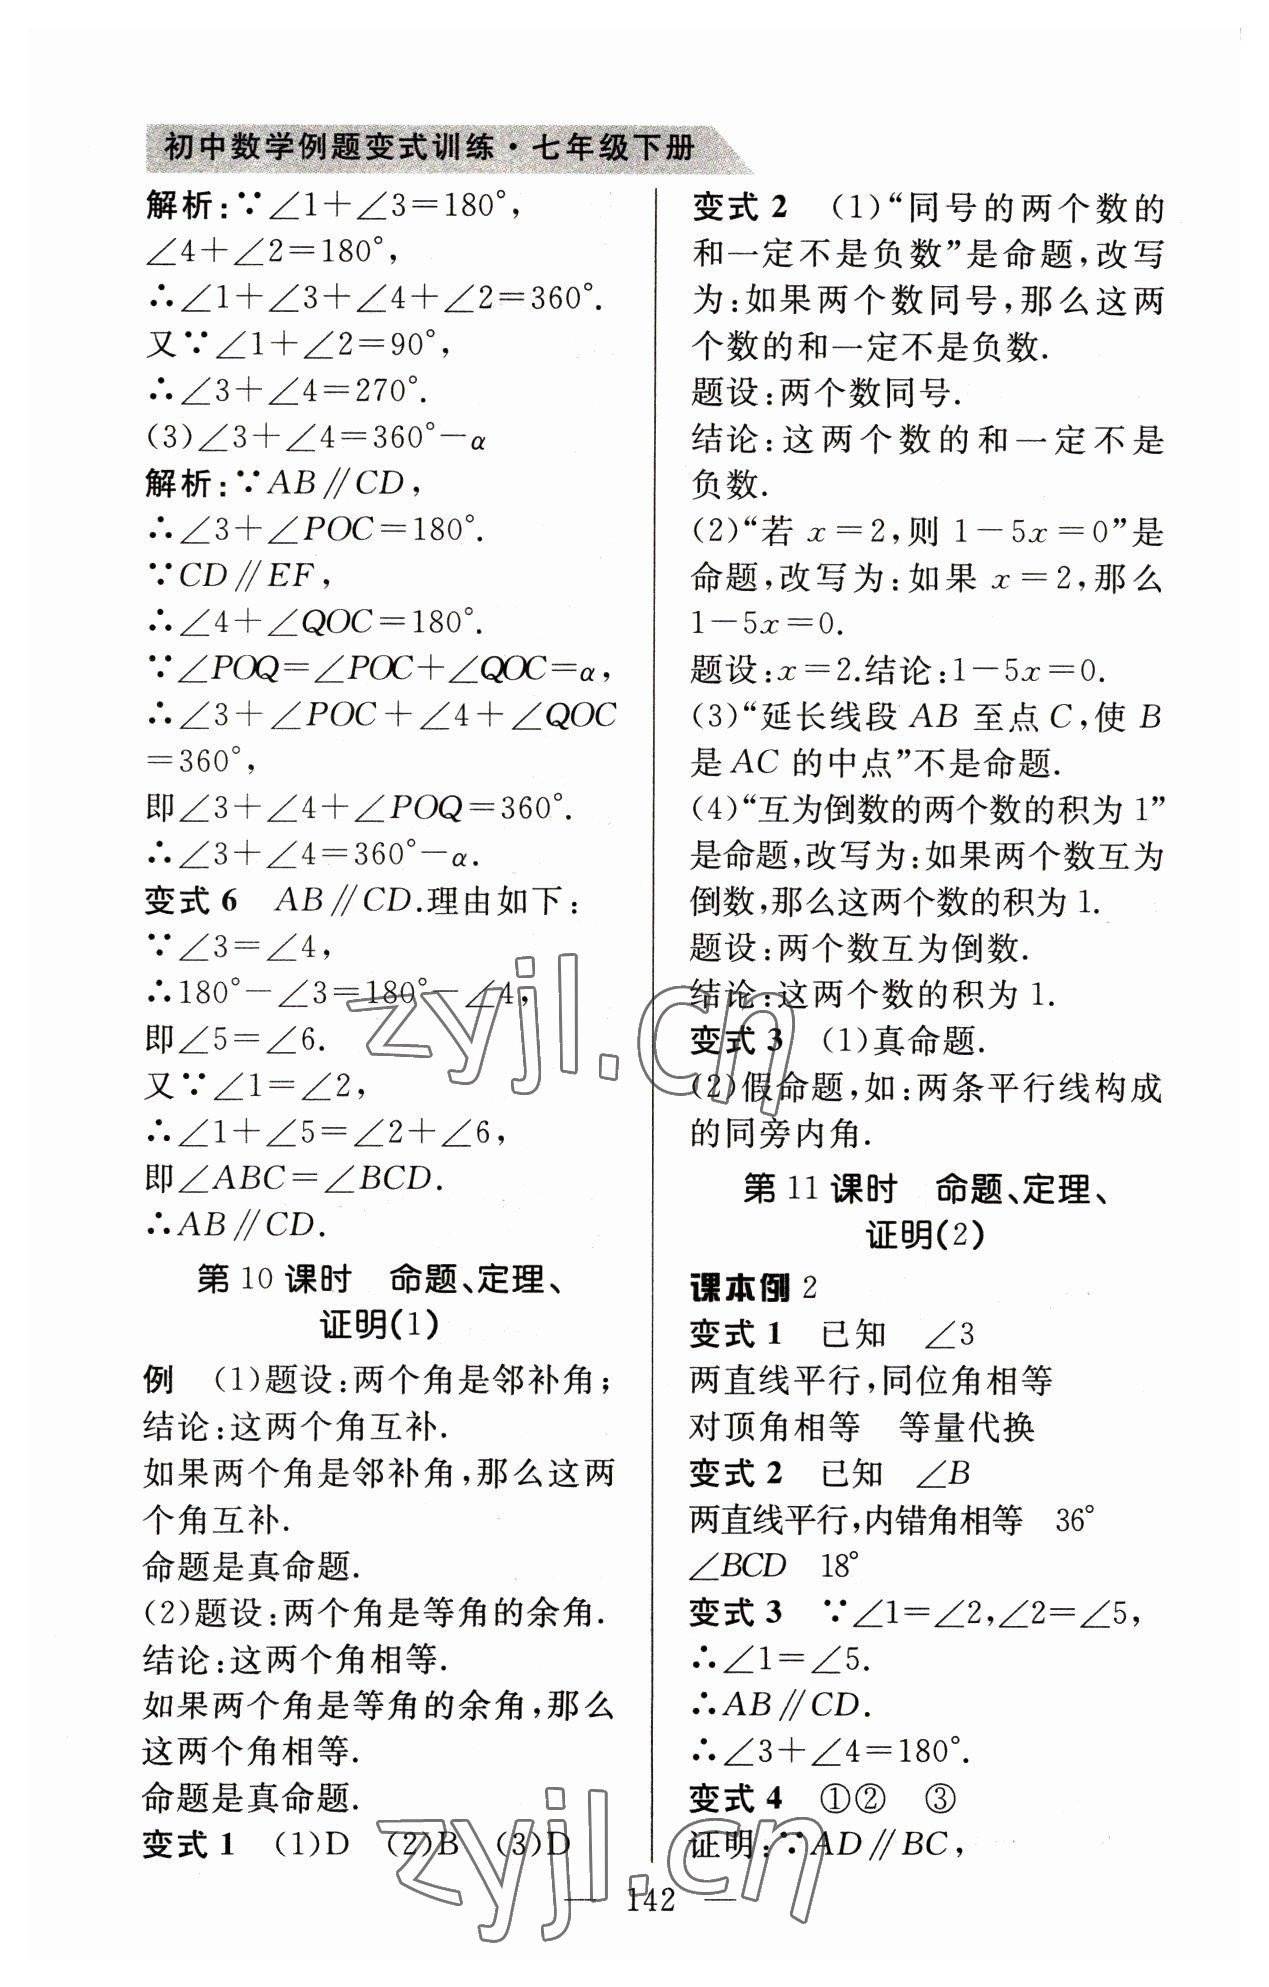 初中数学例题变式训练·七年级下册
解析:∵∠1+∠3=180°,
∠4+∠2=180°,
∴∠1+∠3+∠4+∠2=360°.
又∵∠1+∠2=90°,
∴∠3+∠4=270°.
(3)∠3+∠4=360°-α
解析:∵AB∥CD,
∴∠3+∠POC=180°.
∵CD∥EF,
∴∠4+∠QOC=180°.
∵∠POQ=∠POC+∠QOC=α,
∴∠3+∠POC+∠4+∠QOC
=360°,
即∠3+∠4+∠POQ=360°.
∴∠3+∠4=360°-α.
变式6 AB∥CD.理由如下:
∵∠3=∠4,
∴180°-∠3=180°-∠4,
即∠5=∠6.
又∵∠1=∠2,
∴∠1+∠5=∠2+∠6,
即∠ABC=∠BCD.
∴AB∥CD.
第10课时 命题、定理、
证明(1)
例 (1)题设:两个角是邻补角;
结论:这两个角互补.
如果两个角是邻补角,那么这两
个角互补.
命题是真命题.
(2)题设:两个角是等角的余角.
结论:这两个角相等.
如果两个角是等角的余角,那么
这两个角相等.
命题是真命题.
变式1 (1)D (2)B (3)D
变式2 (1)“同号的两个数的
和一定不是负数”是命题,改写
为:如果两个数同号,那么这两
个数的和一定不是负数.
题设:两个数同号.
结论:这两个数的和一定不是
负数.
(2)“若 x=2,则 1-5x=0”是
命题,改写为:如果 x=2,那么
1-5x=0.
题设:x=2.结论:1-5x=0.
(3)“延长线段 AB 至点 C,使 B
是 AC 的中点”不是命题.
(4)“互为倒数的两个数的积为1”
是命题,改写为:如果两个数互为
倒数,那么这两个数的积为1.
题设:两个数互为倒数.
结论:这两个数的积为1.
变式3 (1)真命题.
(2)假命题,如:两条平行线构成
的同旁内角.
第11课时 命题、定理、
证明(2)
课本例2
变式1 已知 ∠3
两直线平行,同位角相等
对顶角相等 等量代换
变式2 已知 ∠B
两直线平行,内错角相等 36°
∠BCD 18°
变式3 ∵∠1=∠2,∠2=∠5,
∴∠1=∠5.
∴AB∥CD.
∴∠3+∠4=180°.
变式4 ①② ③
证明:∵AD∥BC,
— 142 —
zyjl.cn
zyjl.cn